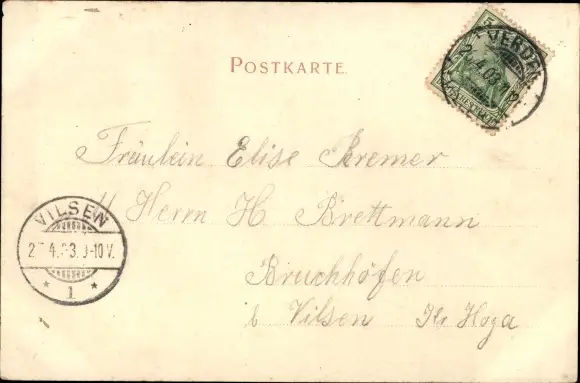 POSTKARTE.
VERDEN
4.03
Fräulein Elise Kremer
Herrn H Brettmann
Bruchhöfen
b Vilsen Kr Hoya
VILSEN
4. 3. -10 V.
* 1 *